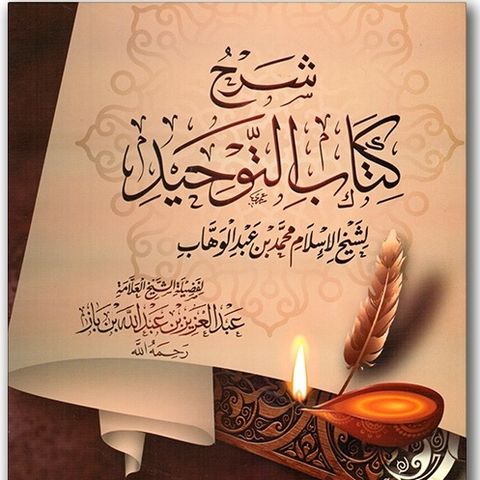 شرح
كتاب التوحيد
لشيخ الإسلام محمد بن عبد الوهاب
لفضيلة الشيخ العلامة
عبد العزيز بن عبد الله بن باز
رحمه الله